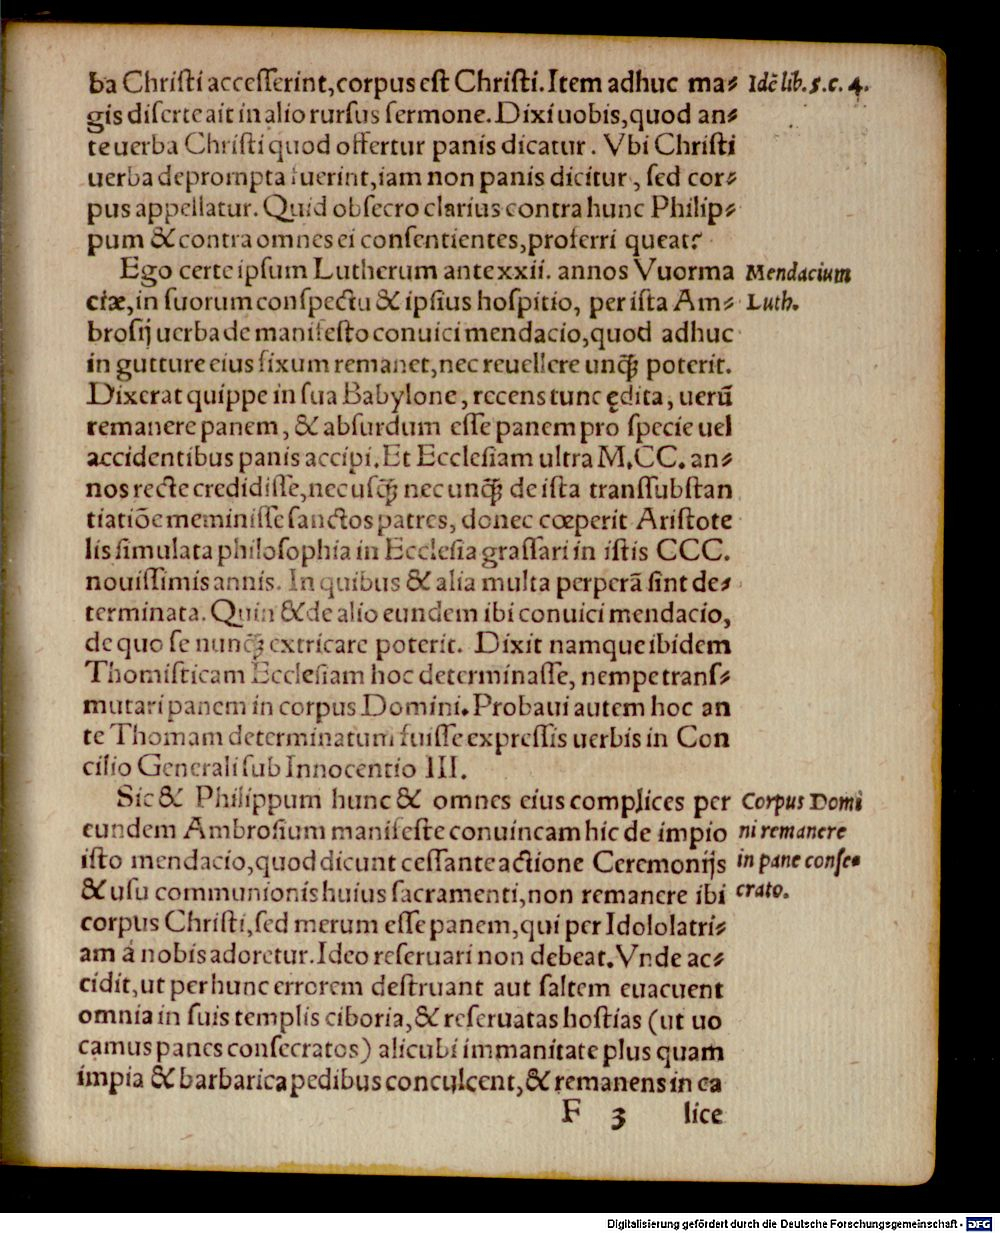 ba Chriſti acceſſerint, corpus eſt Chriſti. Item adhuc ma⸗
Idẽ lib. 5. c. 4.
gis diſerte ait in alio rurſus ſermone. Dixi uobis, quod an⸗
te uerba Chriſti quod offertur panis dicatur. Vbi Chriſti
uerba deprompta fuerint, iam non panis dicitur, ſed cor⸗
pus appellatur. Quid obſecro clarius contra hunc Philip⸗
pum & contra omnes ei conſentientes, proferri queat?
Ego certe ipſum Lutherum ante xxii. annos Vuorma
Mendacium
ciæ, in ſuorum conſpectu & ipſius hoſpitio, per iſta Am⸗
Luth.
broſij uerba de manifeſto conuici mendacio, quod adhuc
in gutture eius fixum remanet, nec reuellere unꝗ̃ poterit.
Dixerat quippe in ſua Babylone, recens tunc ędita, uerũ
remanere panem, & abſurdum eſſe panem pro ſpecie uel
accidentibus panis accipi. Et Eccleſiam ultra M.CC. an⸗
nos recte credidiſſe, nec uſꝗ̃ nec unꝗ̃ de iſta tranſſubſtan
tiatiõe meminiſſe ſanctos patres, donec cœperit Ariſtote
lis ſimulata philoſophia in Eccleſia graſſari in iſtis CCC.
nouiſſimis annis. In quibus & alia multa perperã ſint de⸗
terminata. Quin & de alio eundem ibi conuici mendacio,
de quo ſe nunꝗ̃ extricare poterit. Dixit namque ibidem
Thomiſticam Eccleſiam hoc determinaſſe, nempe tranſ⸗
mutari panem in corpus Domini. Probaui autem hoc an
te Thomam determinatum fuiſſe expreſſis uerbis in Con
cilio Generali ſub Innocentio III.
Sic & Philippum hunc & omnes eius complices per
Corpus Domi
eundem Ambroſium manifeſte conuincam hic de impio
ni remanere
iſto mendacio, quod dicunt ceſſante actione Ceremonijs
in pane conſe⸗
& uſu communionis huius ſacramenti, non remanere ibi
crato.
corpus Chriſti, ſed merum eſſe panem, qui per Idololatri⸗
am á nobis adoretur. Ideo reſeruari non debeat. Vnde ac⸗
cidit, ut per hunc errorem deſtruant aut ſaltem euacuent
omnia in ſuis templis ciboria, & reſeruatas hoſtias (ut uo
camus panes conſecratos) alicubi immanitate plus quam
impia & barbarica pedibus conculcent, & remanens in ca
F 3 lice
Digitalisierung gefördert durch die Deutsche Forschungsgemeinschaft - DFG